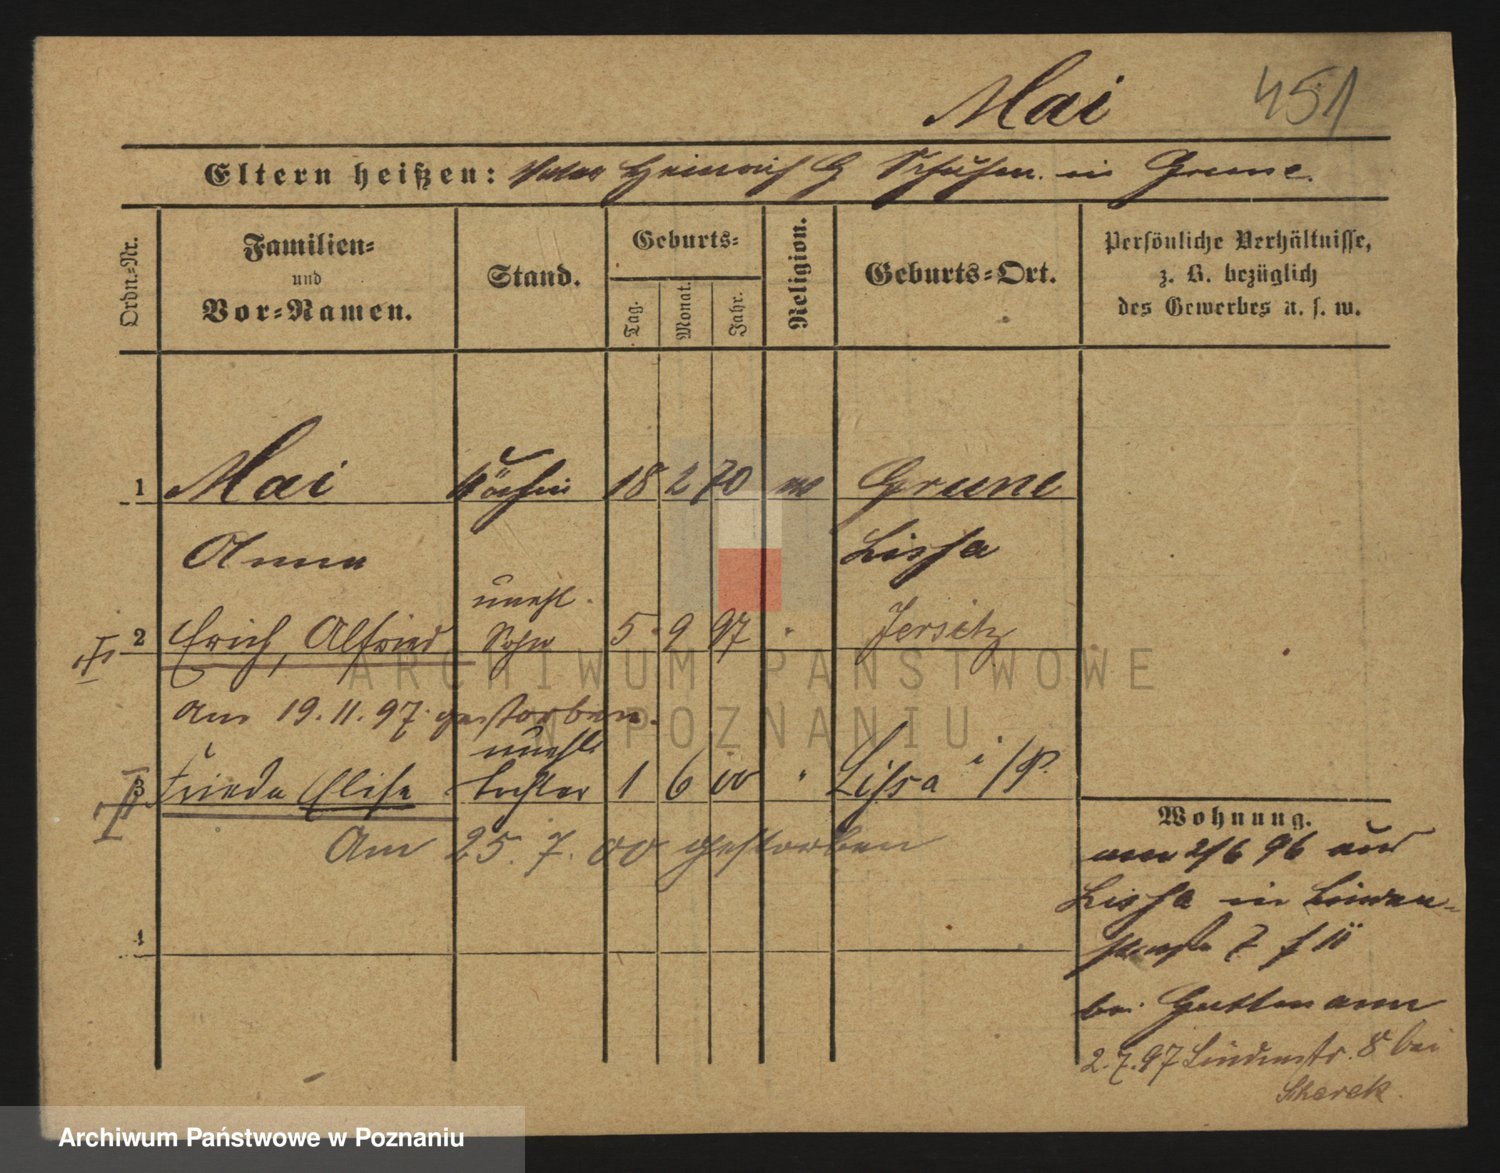 Mai 451
Eltern heißen: Vater Heinrich G in Grune.
Ordn.-Nr.
Familien-
und
Vor-Namen.
Stand.
Geburts-
Tag.
Monat.
Jahr.
Religion.
Geburts-Ort.
Persönliche Verhältnisse,
z. B. bezüglich
des Gewerbes u. s. w.
1 Mai Köchin 18 2 70 ev Grune
Anna Lissa
unehl.
2 Erich, Alfried Sohn 5. 9 97 " Jersitz
Am 19.11.97. gestorben.
unehl.
3 Frieda Elise Tochter 1 6 00 " Lissa i/P.
Am 25. 7. 00 gestorben
4
Wohnung.
am 2/6 96 aus
Lissa in
straße 7 II
bei Guttmann
2.7.97 Lindenstr. 8 bei
Scherek.
ARCHIWUM PAŃSTWOWE
W POZNANIU
Archiwum Państwowe w Poznaniu